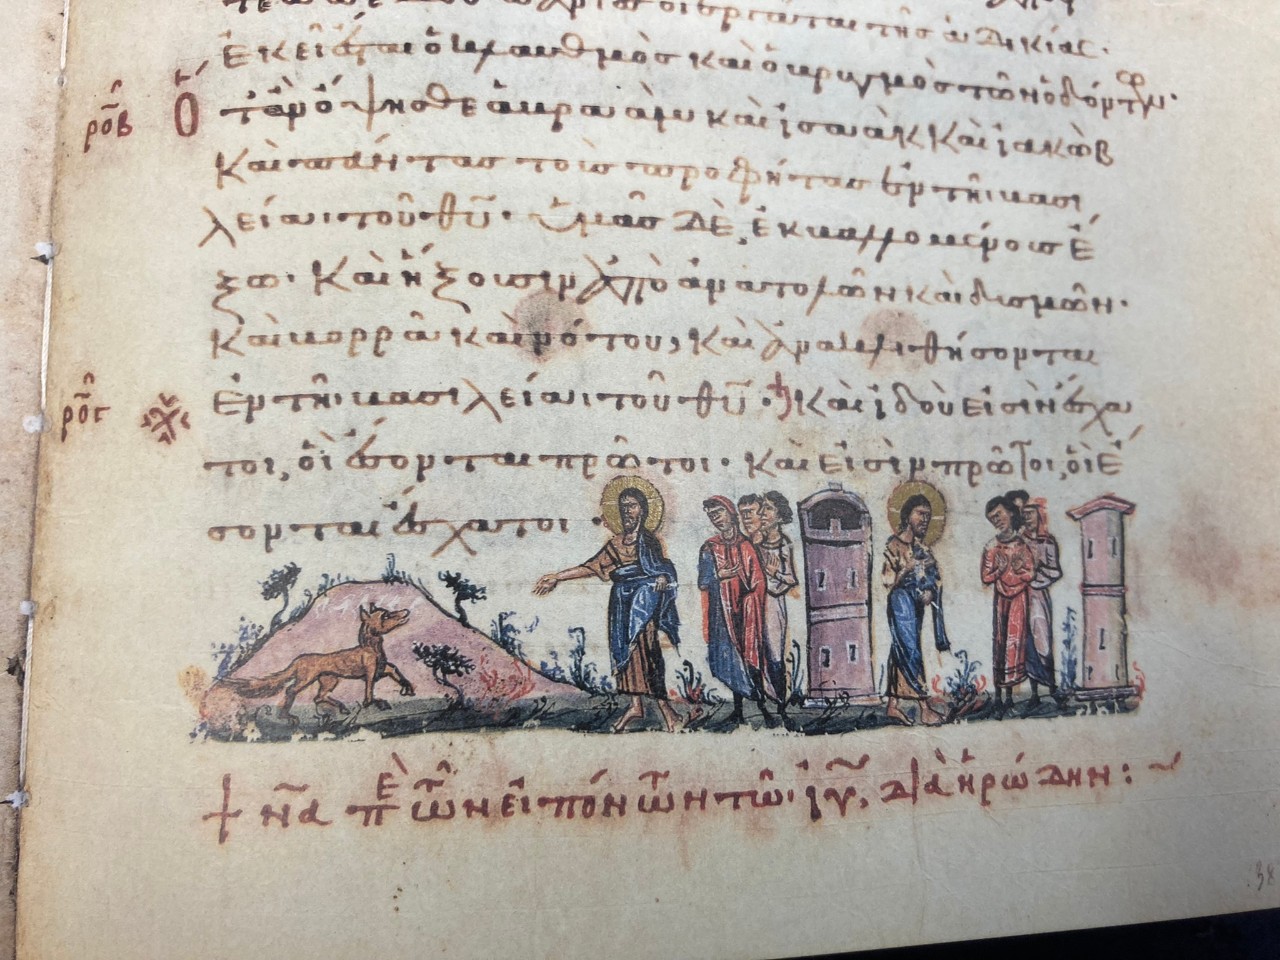 ἐργάται τῆς ἀδικίας·
Ἐκεῖ ἔσται ὁ κλαυθμὸς καὶ ὁ βρυγμὸς τῶν ὀδόντων·
ρο̅β Ὅταν ὄψησθε ἀβραὰμ καὶ ἰσαὰκ καὶ ἰακὼβ
Καὶ πάντας τοὺς προφήτας ἐν τῆι βασι
λείαι τοῦ θῡ· ὑμᾶς δὲ, ἐκβαλλομένους ἔ
ξω· Καὶ ἥξουσιν ἀπὸ ἀνατολῶν καὶ δυσμῶν·
Καὶ βορρᾶ καὶ νότου, καὶ ἀνακλιθήσονται
ρο̅γ Ἐν τῆι βασιλείαι τοῦ θῡ· Καὶ ἰδοὺ εἰσὶν ἔσχα
τοι, οἳ ἔσονται πρῶτοι· καὶ εἰσὶν πρῶτοι, οἳ ἔ
σονται ἔσχατοι·
εἰπόντων τῶ ιῡ, διὰ ἡρώδην:~
38